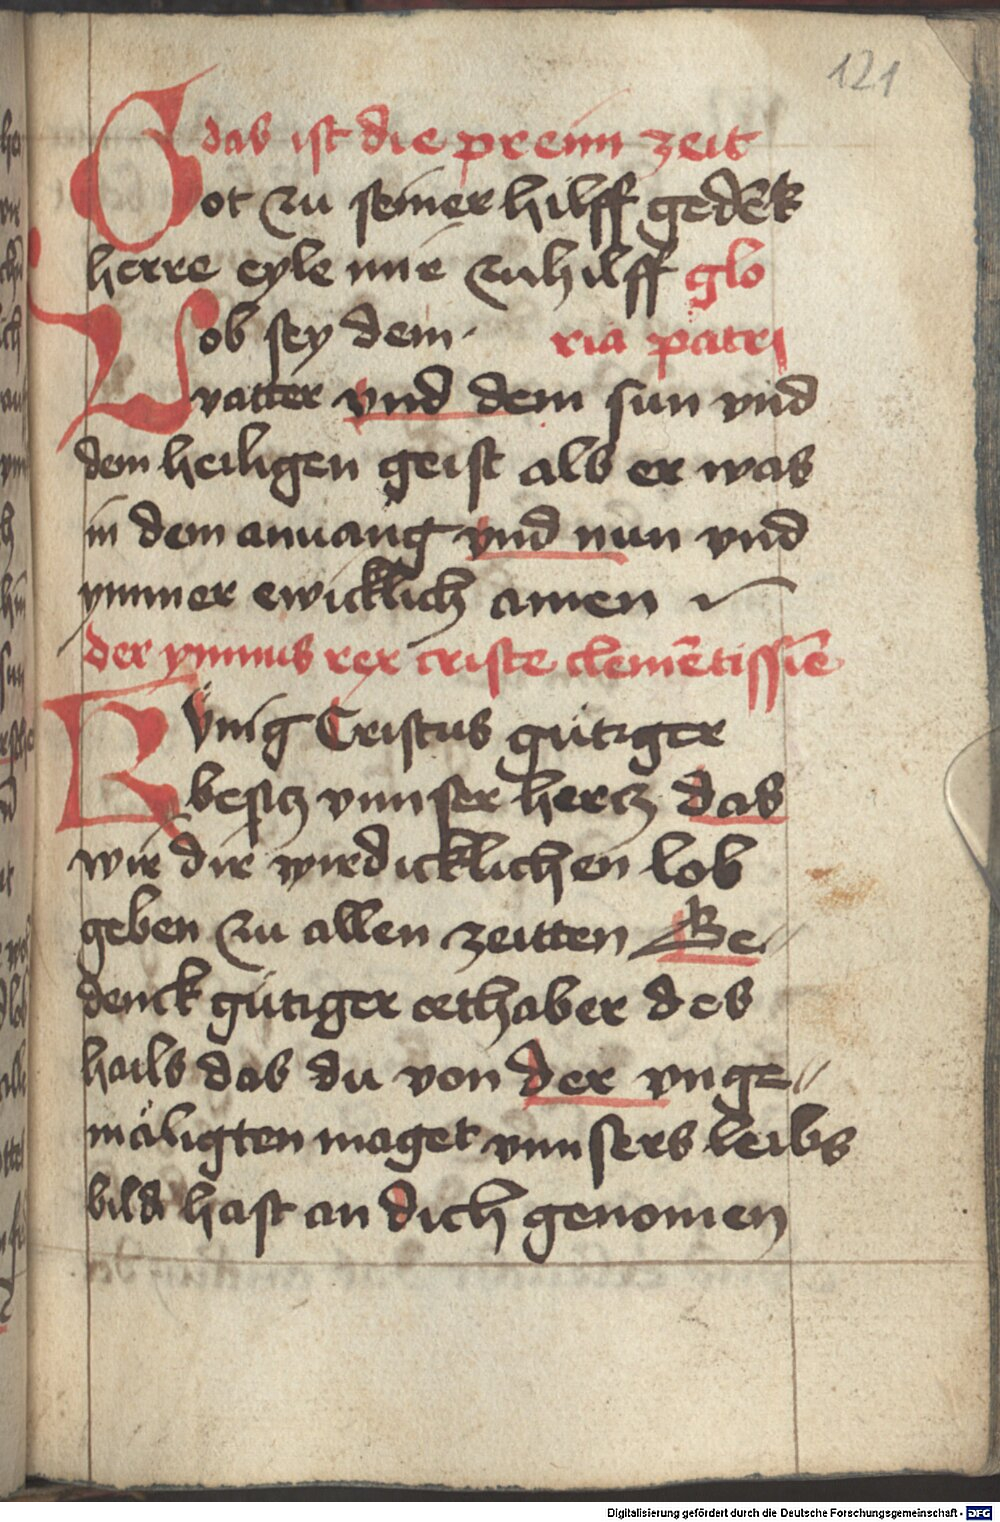 121
das ist die preim zeit
Got zu seiner hilff gedēk
herre eyle mir zuhilff glo
Lob sey dem· ria patri
vatter vnd dem sun vnd
dem heiligen geist als er was
in dem anuang vnd nun vnd
ymmer ewicklich amen
der ymnus rex criste clemētissīe
Künig Cristus gütiger
besitz vnnser hertz das
wir dir wirdicklichen lob
geben zu allen zeitten Ge//
denck gütiger orthaber des
hails das du von der vnge//
mäligten maget vnnsers leibs
bild hast an dich genomen
Digitalisierung gefördert durch die Deutsche Forschungsgemeinschaft - DFG